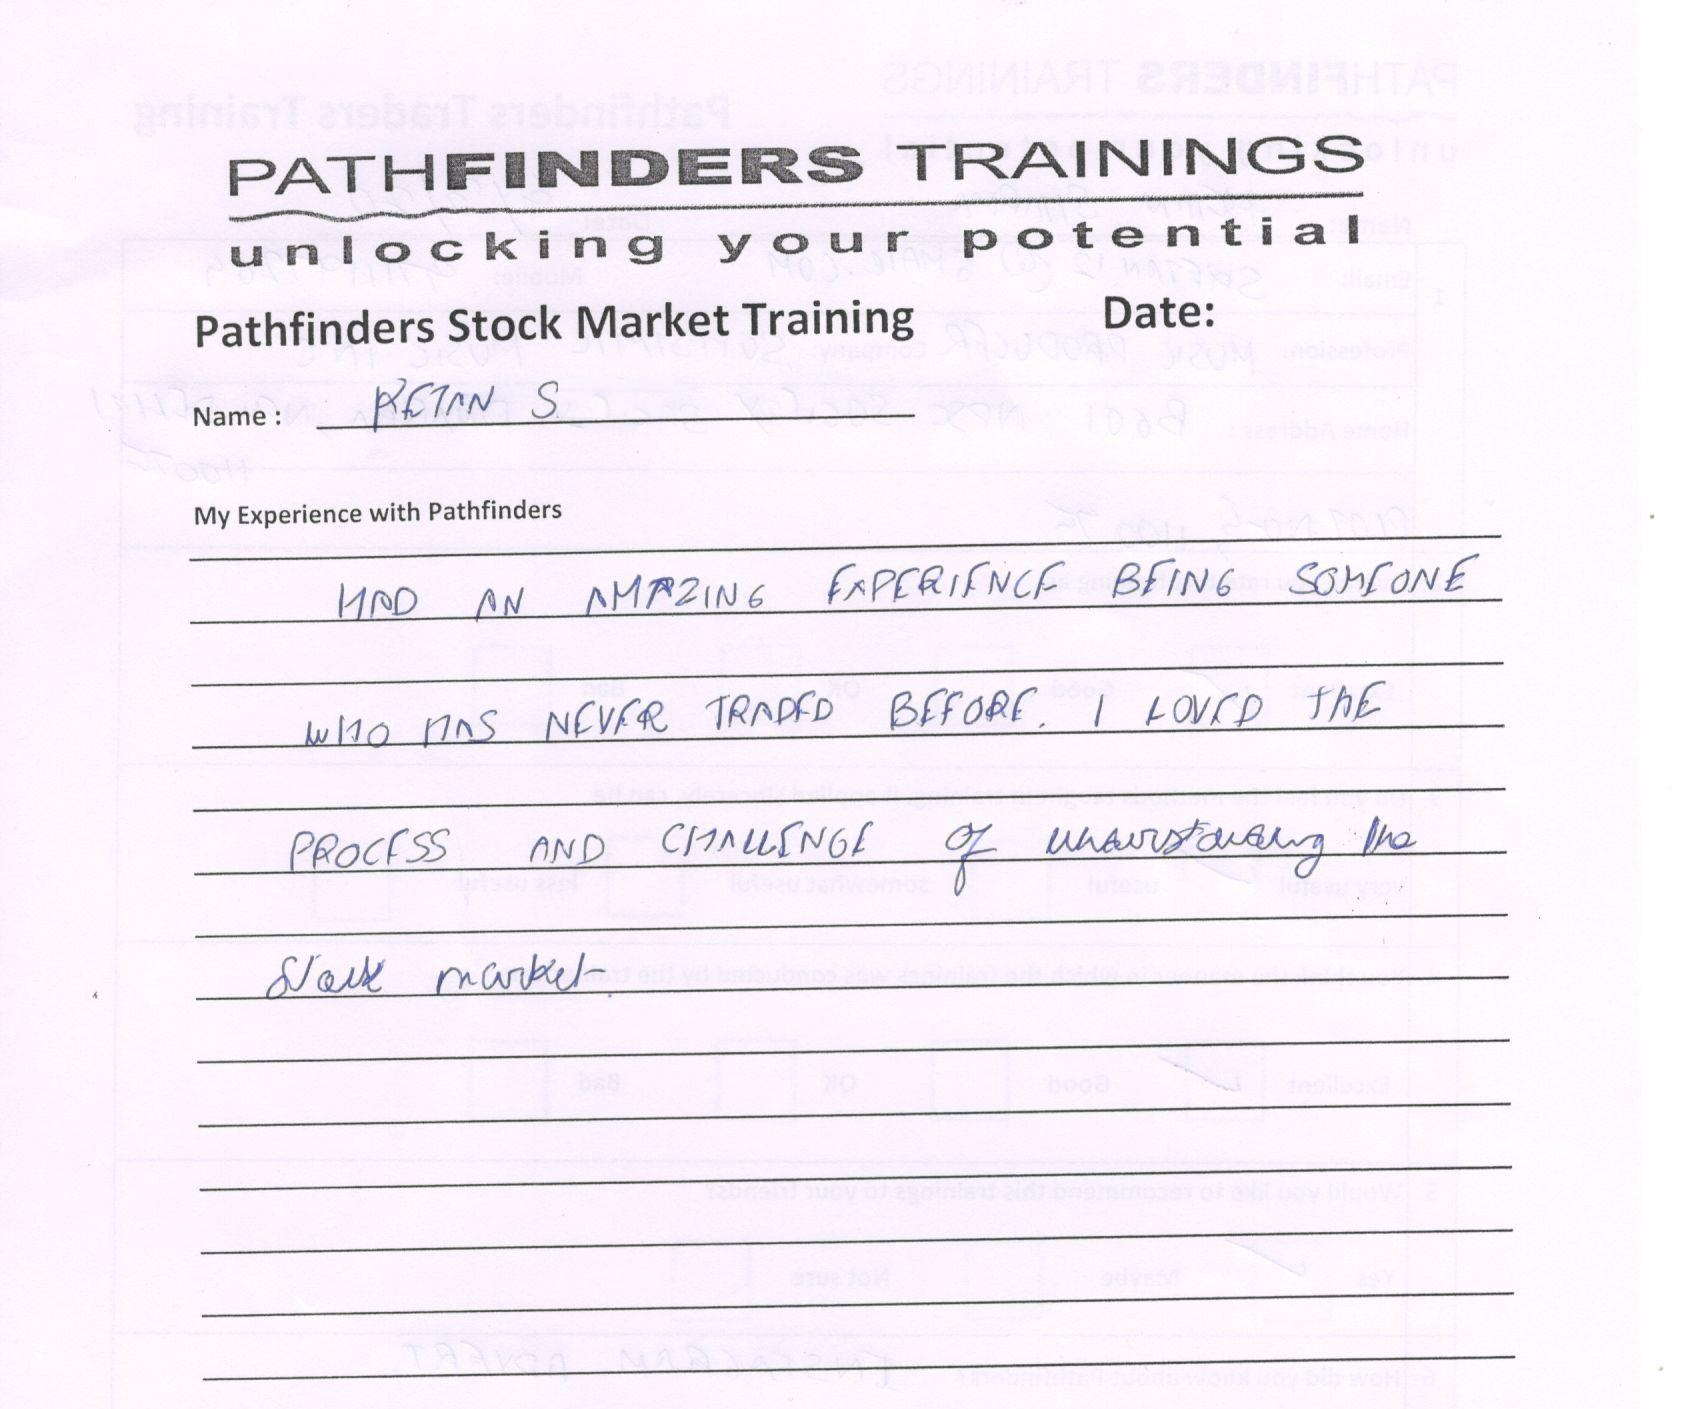 PATHFINDERS TRAININGS
unlocking your potential
Pathfinders Stock Market Training Date:
Name : KETAN S
My Experience with Pathfinders
HAD AN AMAZING EXPERIENCE BEING SOMEONE
WHO HAS NEVER TRADED BEFORE. I LOVED THE
PROCESS AND CHALLENGE of understanding the
Stock market.